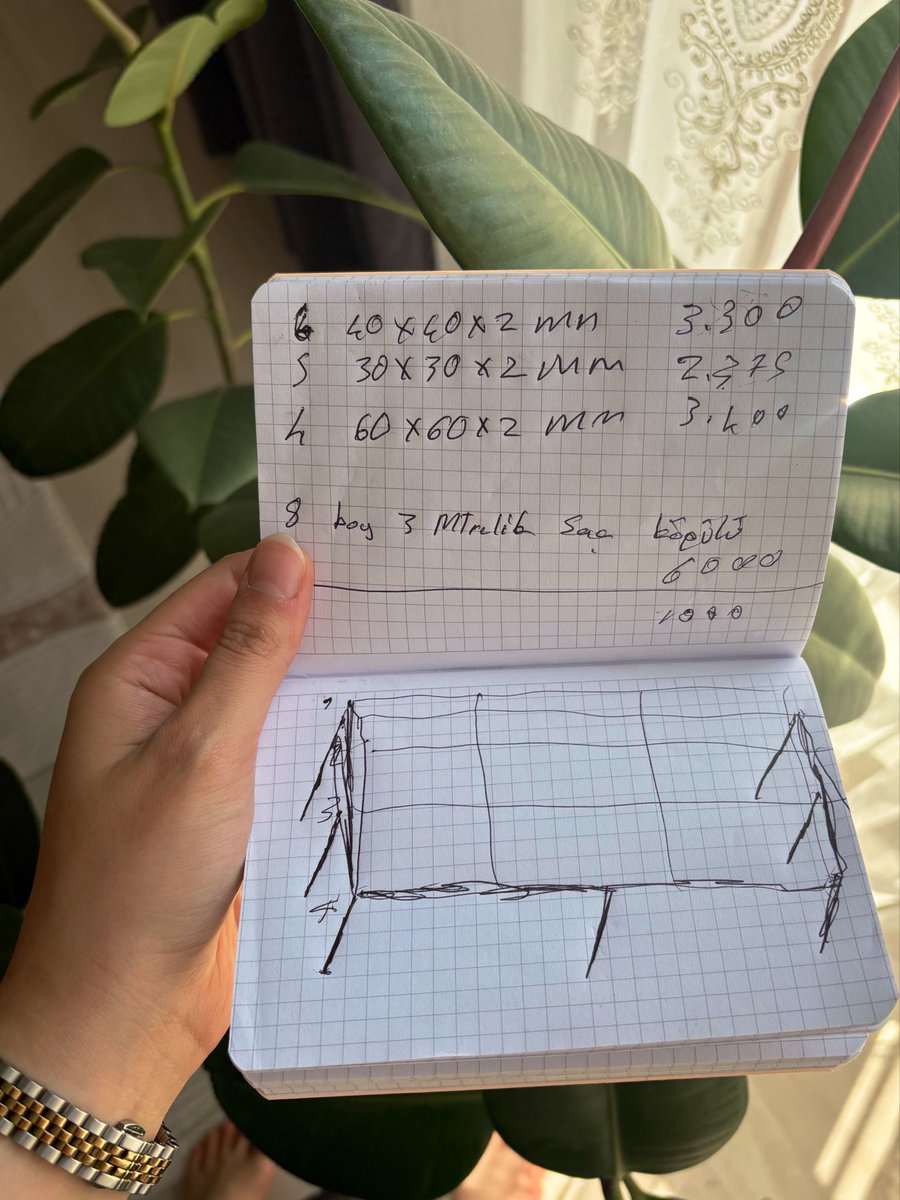 6 40x40x2 mm 3.300
5 30x30x2 MM 2.375
4 60x60x2 MM 3.400
8 boy 3 MTrelik Saç köpülü
6000
1000
1
2
3
4